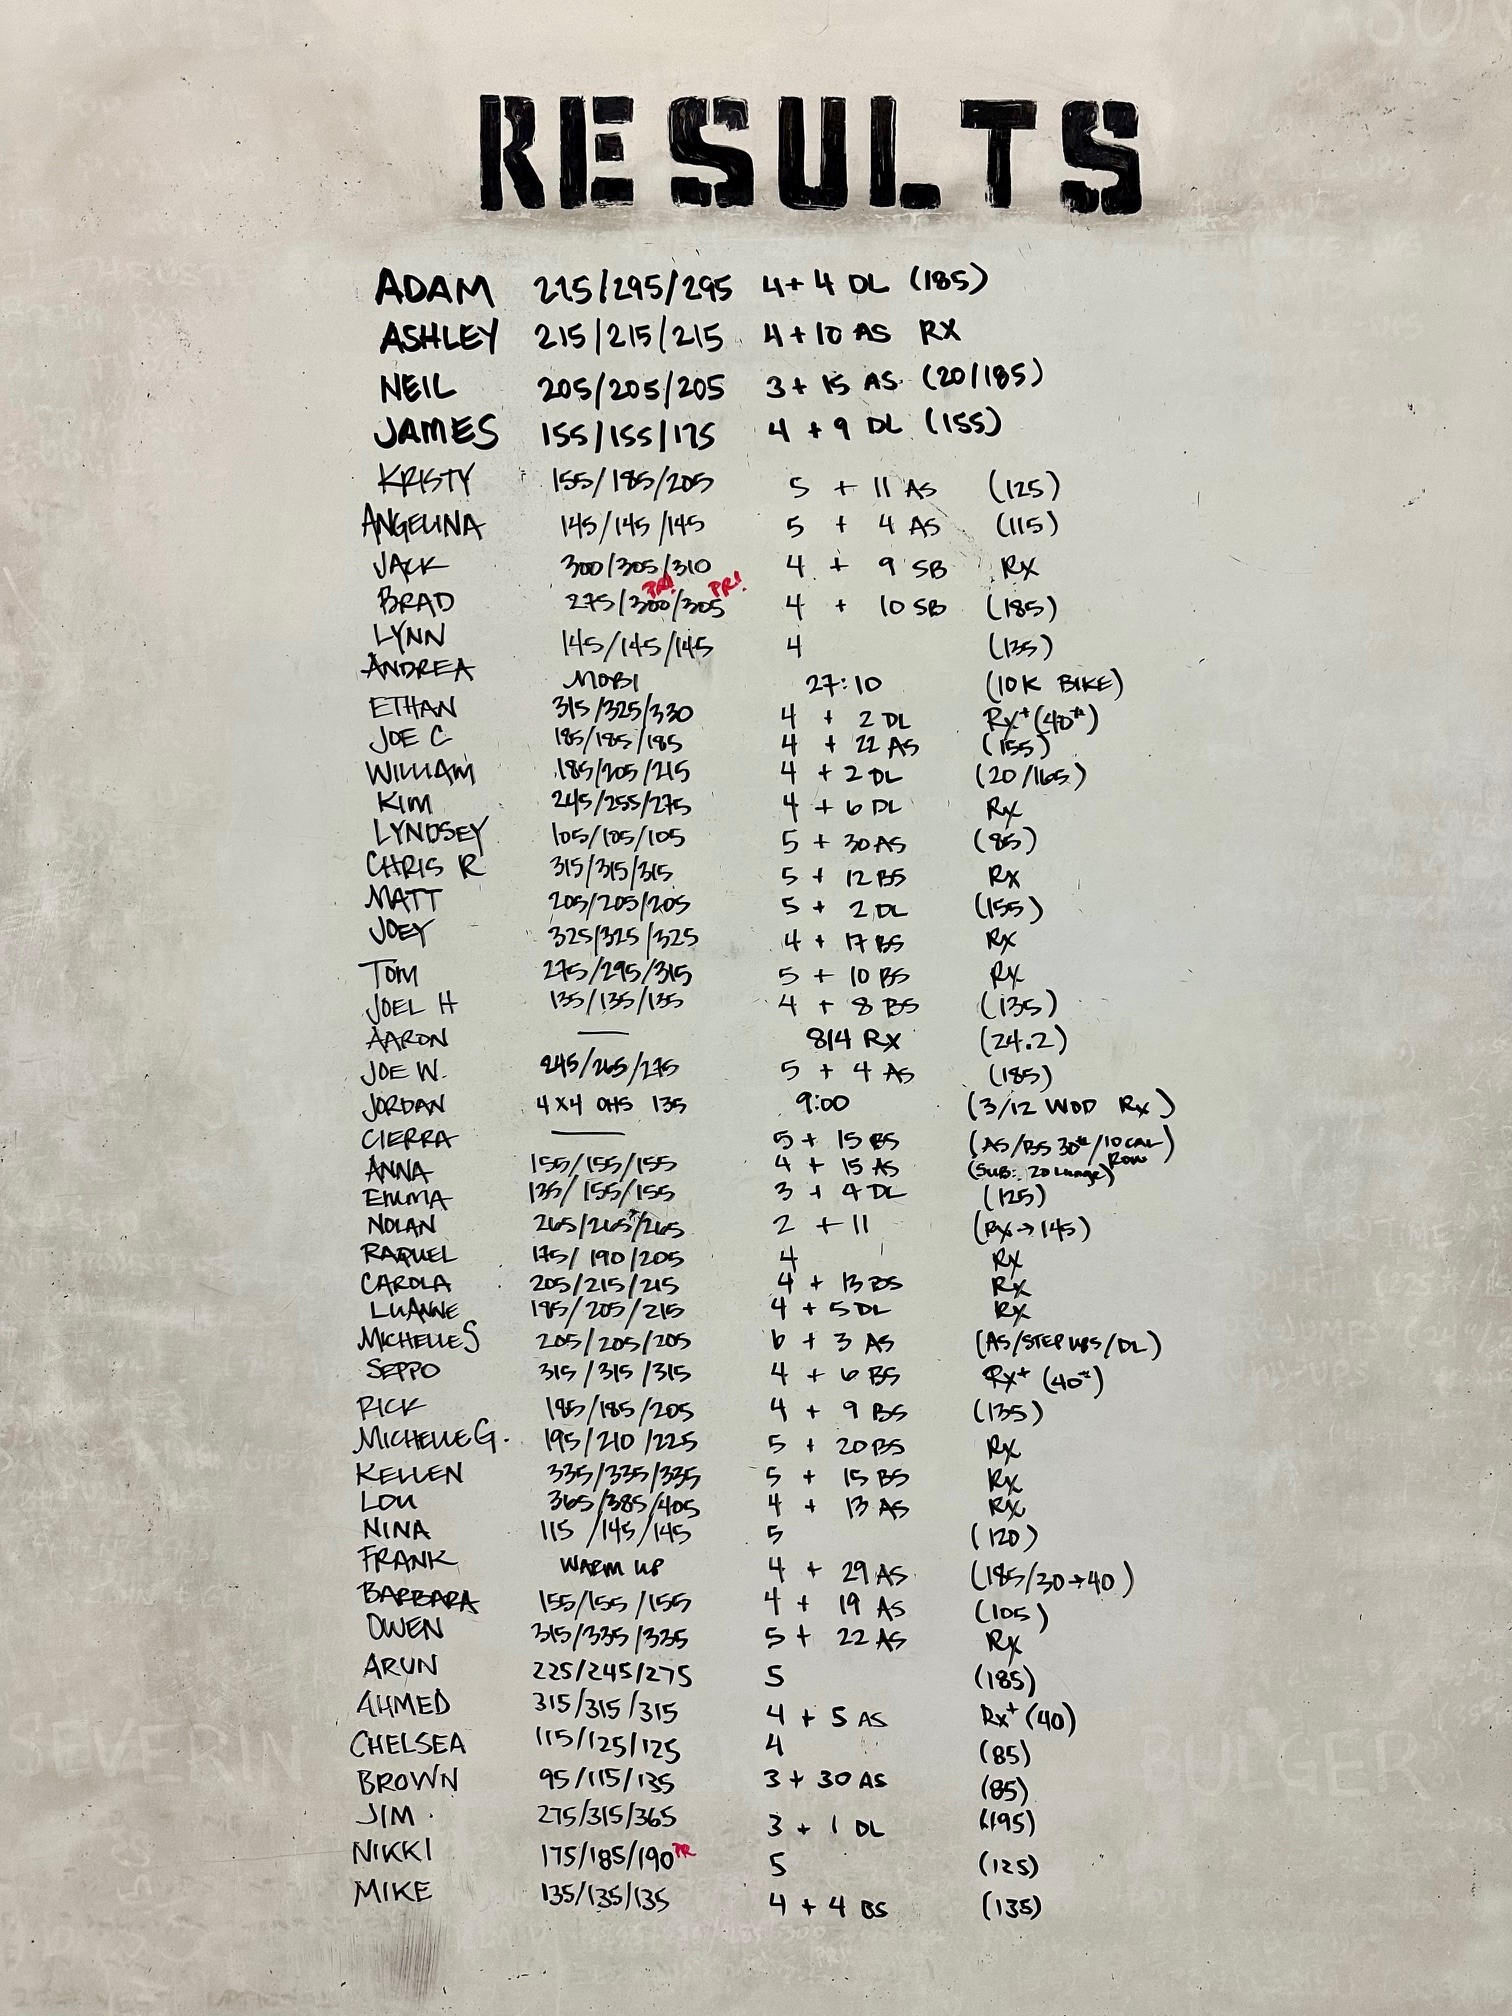 RESULTS
ADAM 275/295/295 4+4 DL (185)
ASHLEY 215/215/215 4+10 AS RX
NEIL 205/205/205 3+15 AS (20/185)
JAMES 155/155/175 4+9 DL (155)
KRISTY 155/185/205 5 + 11 AS (125)
ANGELINA 145/145/145 5 + 4 AS (115)
JACK 300/305/310 4 + 9 SB RX
PR! PR!
BRAD 275/300/305 4 + 10 SB (185)
LYNN 145/145/145 4 (135)
ANDREA MOBI 27:10 (10K BIKE)
ETHAN 315/325/330 4 + 2 DL RX+ (40#)
JOE C 185/185/185 4 + 22 AS (155)
WILLIAM 185/205/215 4 + 2 DL (20/165)
KIM 245/255/275 4 + 6 DL RX
LYNDSEY 105/105/105 5 + 30 AS (85)
CHRIS R 315/315/315 5 + 12 BS RX
MATT 205/205/205 5 + 2 DL (155)
JOEY 325/325/325 4 + 17 BS RX
TOM 275/295/315 5 + 10 BS RX
JOEL H 135/135/135 4 + 8 BS (135)
AARON — 814 RX (24.2)
JOE W. 245/265/275 5 + 4 AS (185)
JORDAN 4X4 OHS 135 9:00 (3/12 WOD RX)
CIERRA — 5 + 15 BS (AS/BS 30#/10 CAL ROW)
ANNA 155/155/155 4 + 15 AS (SUB: 20 Lunge)
EMMA 135/155/155 3 + 4 DL (125)
NOLAN 265/265/265 2 + 11 (RX→145)
RAQUEL 175/190/205 4 RX
CAROLA 205/215/215 4 + 13 BS RX
LUANNE 195/205/215 4 + 5 DL RX
MICHELLE S 205/205/205 6 + 3 AS (AS/STEP UPS/DL)
SEPPO 315/315/315 4 + 6 BS RX+ (40#)
RICK 185/185/205 4 + 9 BS (135)
MICHELLE G. 195/210/225 5 + 20 BS RX
KELLEN 335/335/335 5 + 15 BS RX
LOU 365/385/405 4 + 13 AS RX
NINA 115/145/145 5 (120)
FRANK WARM UP 4 + 29 AS (185/30→40)
BARBARA 155/155/155 4 + 19 AS (105)
OWEN 315/335/335 5 + 22 AS RX
ARUN 225/245/275 5 (185)
AHMED 315/315/315 4 + 5 AS RX+ (40)
CHELSEA 115/125/125 4 (85)
BROWN 95/115/135 3 + 30 AS (85)
JIM 275/315/365 3 + 1 DL (195)
NIKKI 175/185/190 PR 5 (125)
MIKE 135/135/135 4 + 4 BS (135)
SEVERIN
BULGER